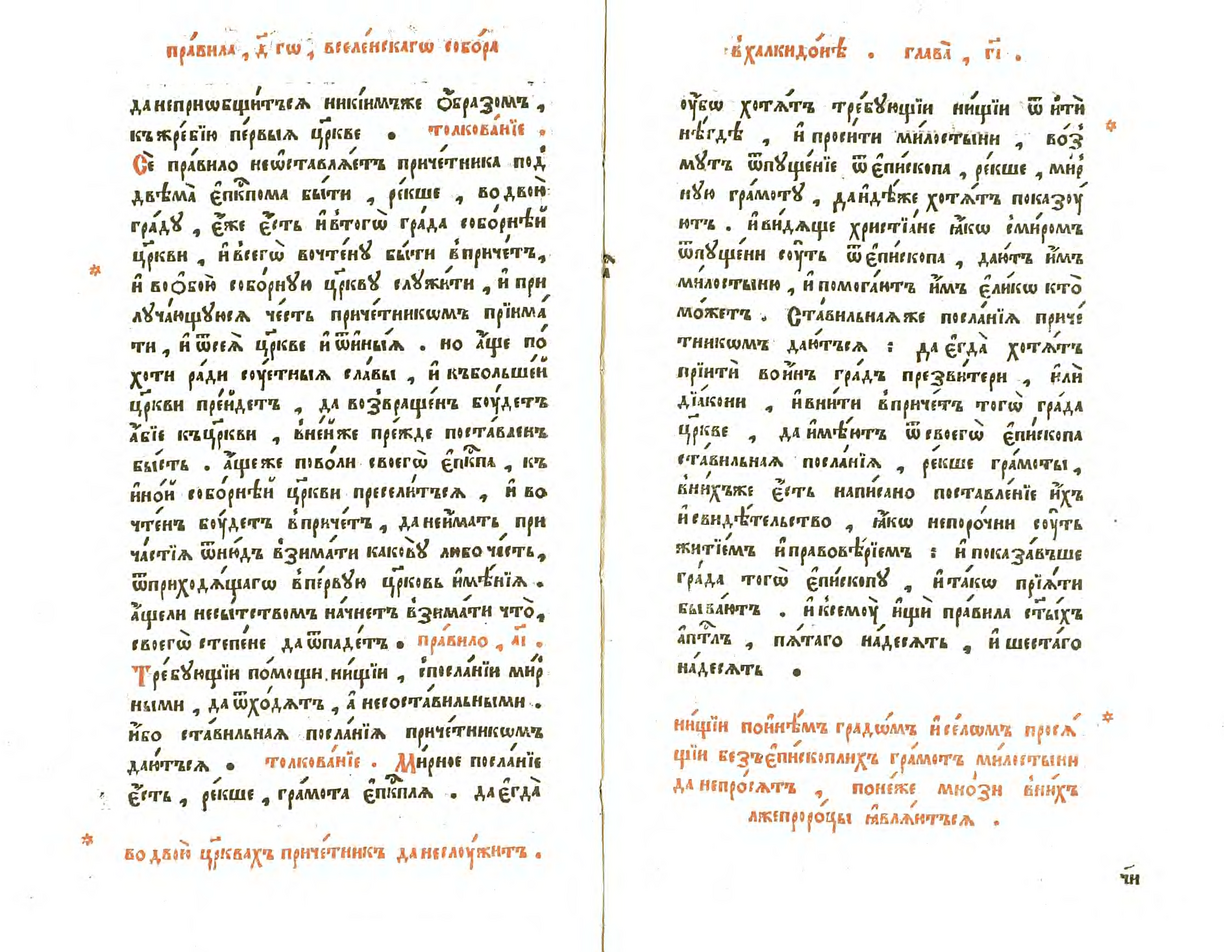 пра́вила , д҃ гѡ , вселе́нскагѡ собо́ра
да непрїѡбщи́тъсѧ никі́имъже ѻ҆́бразомъ ,
къ жре́бїю пе́рвыѧ цр҃кве . толкова́нїе .
Се̑ пра́вило неѡ҆ставлѧ́етъ приче́тника под̾
двѣма̀ є҆пк҃пома бы́ти , ре́кше , во двою̀
гра́дꙋ , є҆́же є҆́сть и҆ в̾ тогѡ̀ гра́да собо́рнѣй
цр҃кви , и҆ всегѡ̀ вочте́нꙋ бы́ти в̾ приче́тъ ,
и҆ во ѻ҆бою̀ собо́рнꙋю цр҃квꙋ слꙋжи́ти , и҆ при
лꙋча́ющꙋюсѧ че́сть приче́тникѡмъ прїима́
ти , и҆ ѿ сеѧ̀ цр҃кве и҆ ѿ и҆ны́ѧ . но а҆́ще по́
хоти ра́ди соу́етныѧ сла́вы , и҆ къ бо́льшей
цр҃кви пре́идетъ , да возвраще́нъ бꙋ́детъ
а҆́бїе къ цр҃кви , в̾ не́йже пре́жде поста́вленъ
бы́сть . а҆́щеже пово́ли своегѡ̀ є҆пк҃па , къ
и҆но́й собо́рнѣй цр҃кви пресели́тъсѧ , и҆ во
чте́нъ боу́детъ в̾ приче́тъ , да неи҆́мать при
ча́стїѧ ѿню́дъ взима́ти какові́ любо че́сть ,
ѿ приходѧ́щагѡ в̾ пе́рвꙋю цр҃ковь и҆мѣ́нїѧ .
а҆́щели несы́тствомъ на́чнетъ взима́ти что̀ ,
своегѡ̀ степе́не да ѿпаде́тъ . пра́вило , а҃і .
Тре́бꙋющїи по́мощи ни́щїи , с̾ посла́нїи ми́р
ными , да ѿхо́дѧтъ , а҆ несоста́вильными .
и҆́бо ста́вильнаѧ посла́нїѧ приче́тникѡмъ
даю́тъсѧ . толкова́нїе . Ми́рное посла́нїе
є҆́сть , ре́кше , гра́мота є҆пк҃плѧ . да є҆гда̀
во двою̀ цр҃квахъ приче́тникъ да неслоу́житъ .
в̾ халкидо́нѣ . глава̀ , г҃і .
оу҆́бѡ хотѧ́тъ тре́бꙋющїи ни́щїи ѿ и҆тѝ
нѣ́гдѣ , и҆ проси́ти ми́лостыни , во́з
мꙋтъ ѿпꙋще́нїе ѿ є҆пи́скопа , ре́кше , ми́р
нꙋю гра́мотꙋ , да и҆дѣ́же хотѧ́тъ показоу́
ютъ . и҆ ви́дѧще христїа́не ꙗ҆́кѡ с̾ми́ромъ
ѿпꙋ́щени соу́ть ѿ є҆пи́скопа , даю́тъ и҆̀мъ
ми́лостыню , и҆ помога́ютъ и҆̀мъ є҆ли́кѡ кто̀
мо́жетъ . Ста́вильнаѧже посла́нїѧ приче́
тникѡмъ даю́тьсѧ : да є҆гда̀ хотѧ́тъ
прїитѝ во и҆́нъ гра́дъ презви́тери , и҆лѝ
дїа́кони , и҆ вни́ти в̾ приче́тъ тогѡ̀ гра́да
цр҃кве , да и҆мѣ́ютъ ѿ своегѡ̀ є҆пи́скопа
ста́вильнаѧ посла́нїѧ , ре́кше гра́моты ,
в̾ ни́хъже є҆́сть напи́сано поставле́нїе и҆́хъ
и҆ свидѣ́тельство , ꙗ҆́кѡ непоро́чни соу́ть
житїе́мъ и҆ правовѣ́рїемъ : и҆ показа́въше
гра́да тогѡ̀ є҆пи́скопꙋ , и҆ та́кѡ прїѧ́ти
быва́ютъ . и҆ к̾семоу̀ и҆щѝ пра́вила ст҃ы́хъ
а҆пт҃лъ , пѧ́таго на́десѧть , и҆ шеста́го
на́десѧть .
ни́щїи по и҆нѣ́мъ градѡ́мъ и҆ се́лѡмъ просѧ́
щїи безъ є҆пи́скоплихъ гра́мотъ ми́лостыни
да непро́сѧтъ , поне́же мно́зи в̾ ни́хъ
лжепроро́цы ꙗ҆влѧ́ютъсѧ .
ч҃и